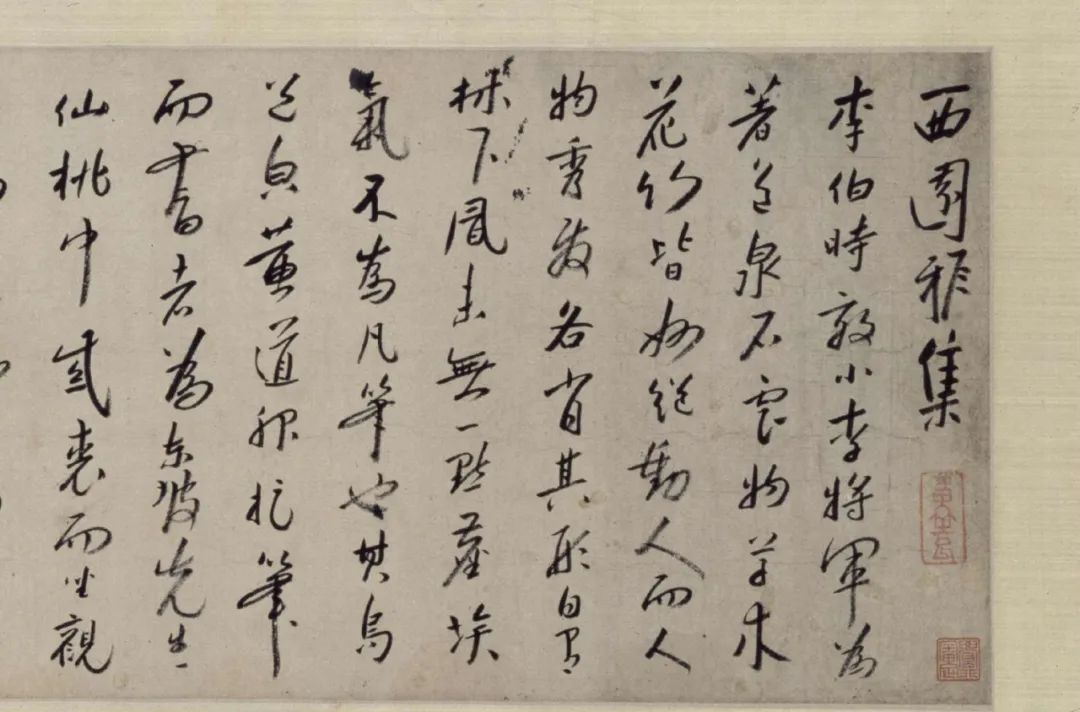 西園雅集
李伯時效小李將軍為
著色泉石雲物草木
花竹皆妙絕動人而人
物秀發各肖其形自有
林下風味無一點塵埃
氣不為凡筆也其烏
黃道服捉筆
而書者為東坡先生
仙桃巾紫裘而坐觀